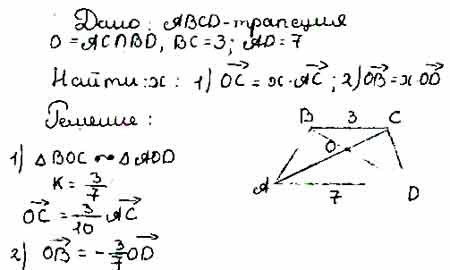 Дано: ABCD-трапеция
O = AC∩BD, BC = 3; AD = 7
Найти: x: 1) OC⃗ = x·AC⃗; 2) OB⃗ = x·OD⃗
Решение:
1) △BOC ~ △AOD
K = 3/7
OC⃗ = 3/10 AC⃗
2) OB⃗ = -3/7 OD⃗
B 3 C
O
A 7 D